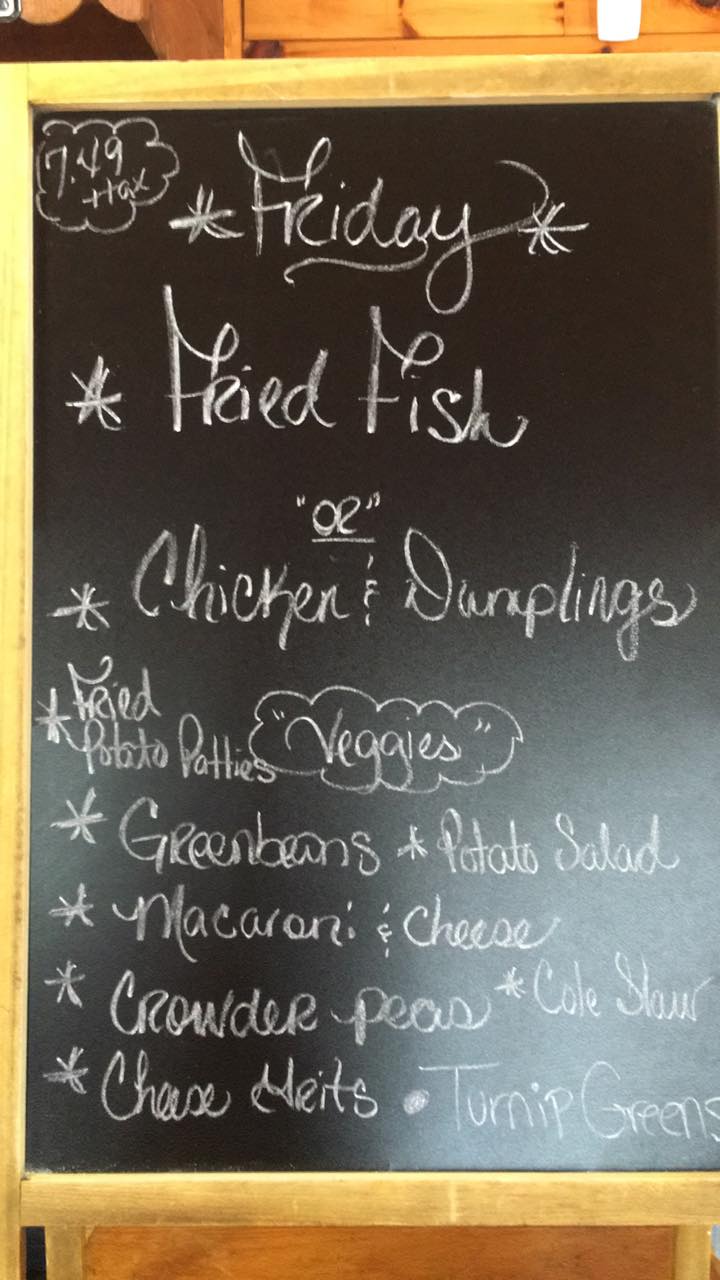 7.49
+tax
* Friday *
* Fried Fish
"OR"
* Chicken & Dumplings
* Fried
Potato Patties
"Veggies"
* Greenbeans * Potato Salad
* Macaroni & Cheese
* Crowder peas * Cole Slaw
* Cheese Grits • Turnip Greens